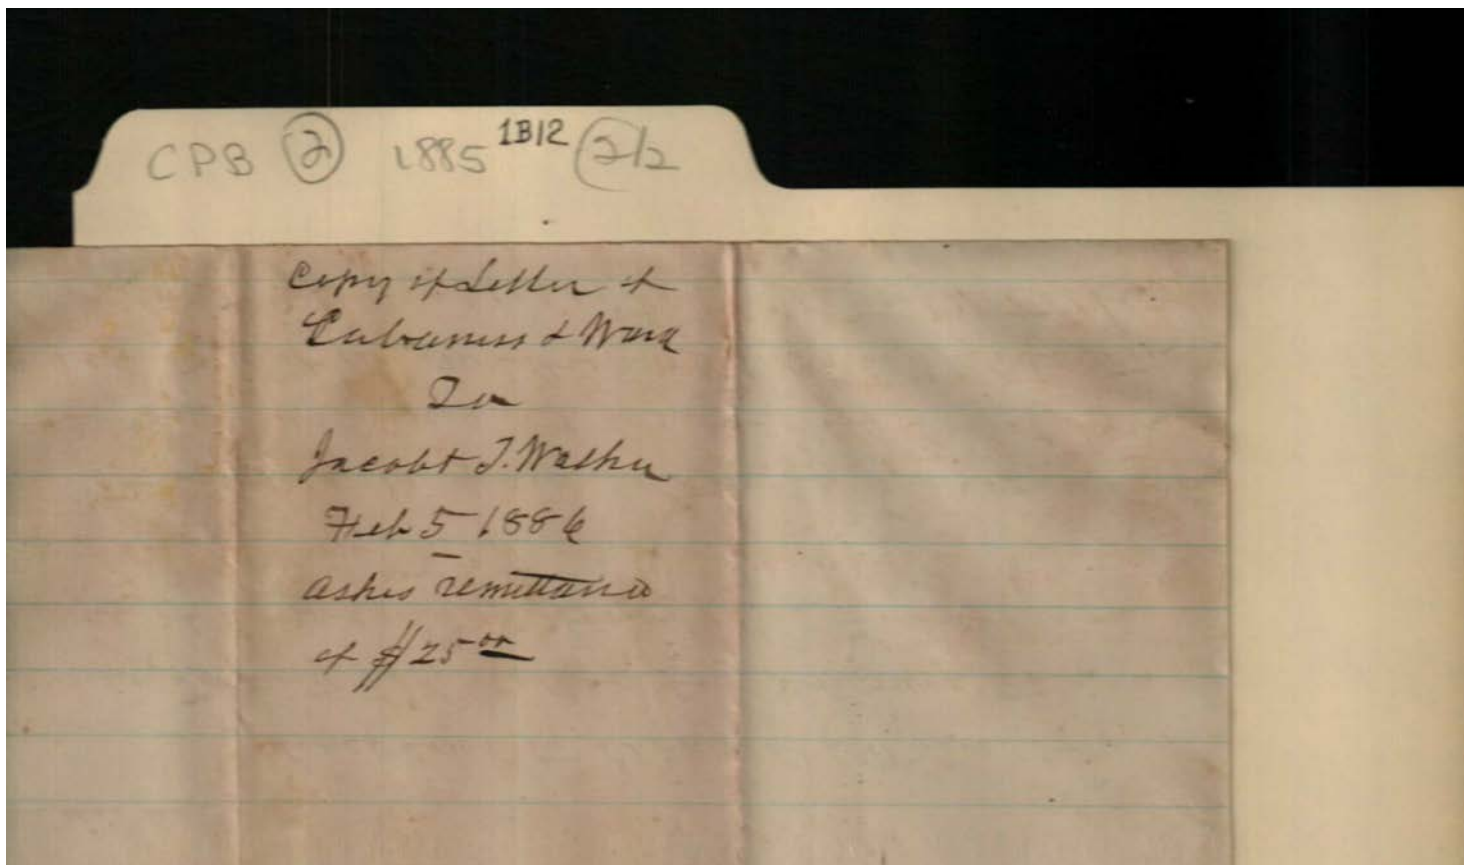 CPB 2 1885 1B12 2/2
Copy of Letter of
Cabaniss & Ward
To
Jacob T. Walker
Feb 5 1886
Askes remittance
of $25 00